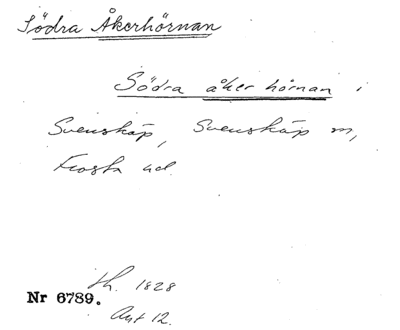 Södra Åkerhörnan
Södra åker hörnan i
Svenskåp, Svenskåp m,
Frosta hd.
Nr 6789.
h. 1828
Akt 12.